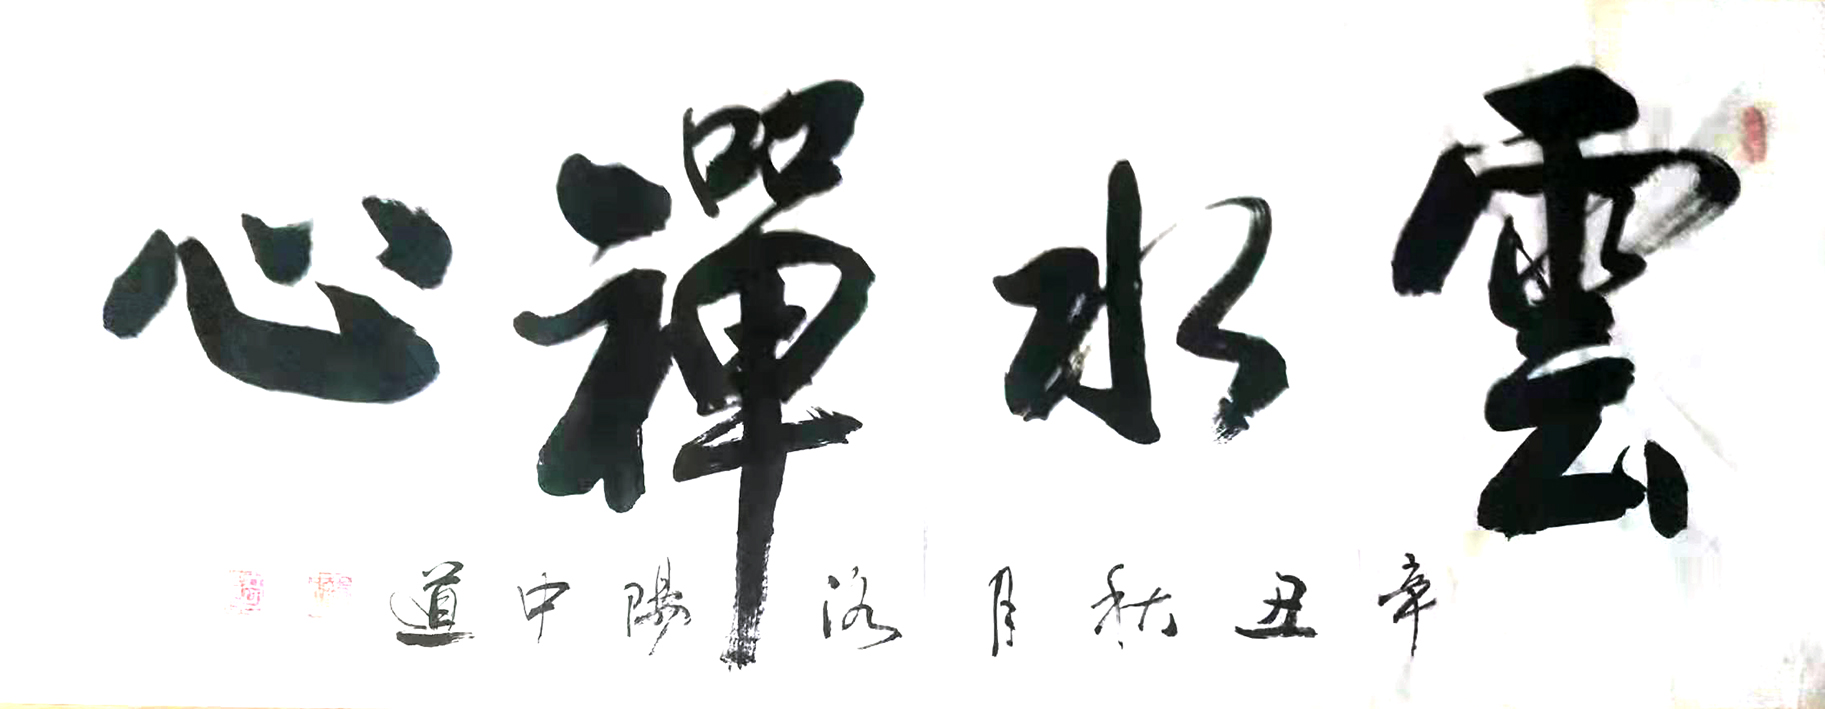 雲水禪心
辛丑秋月洛陽中道